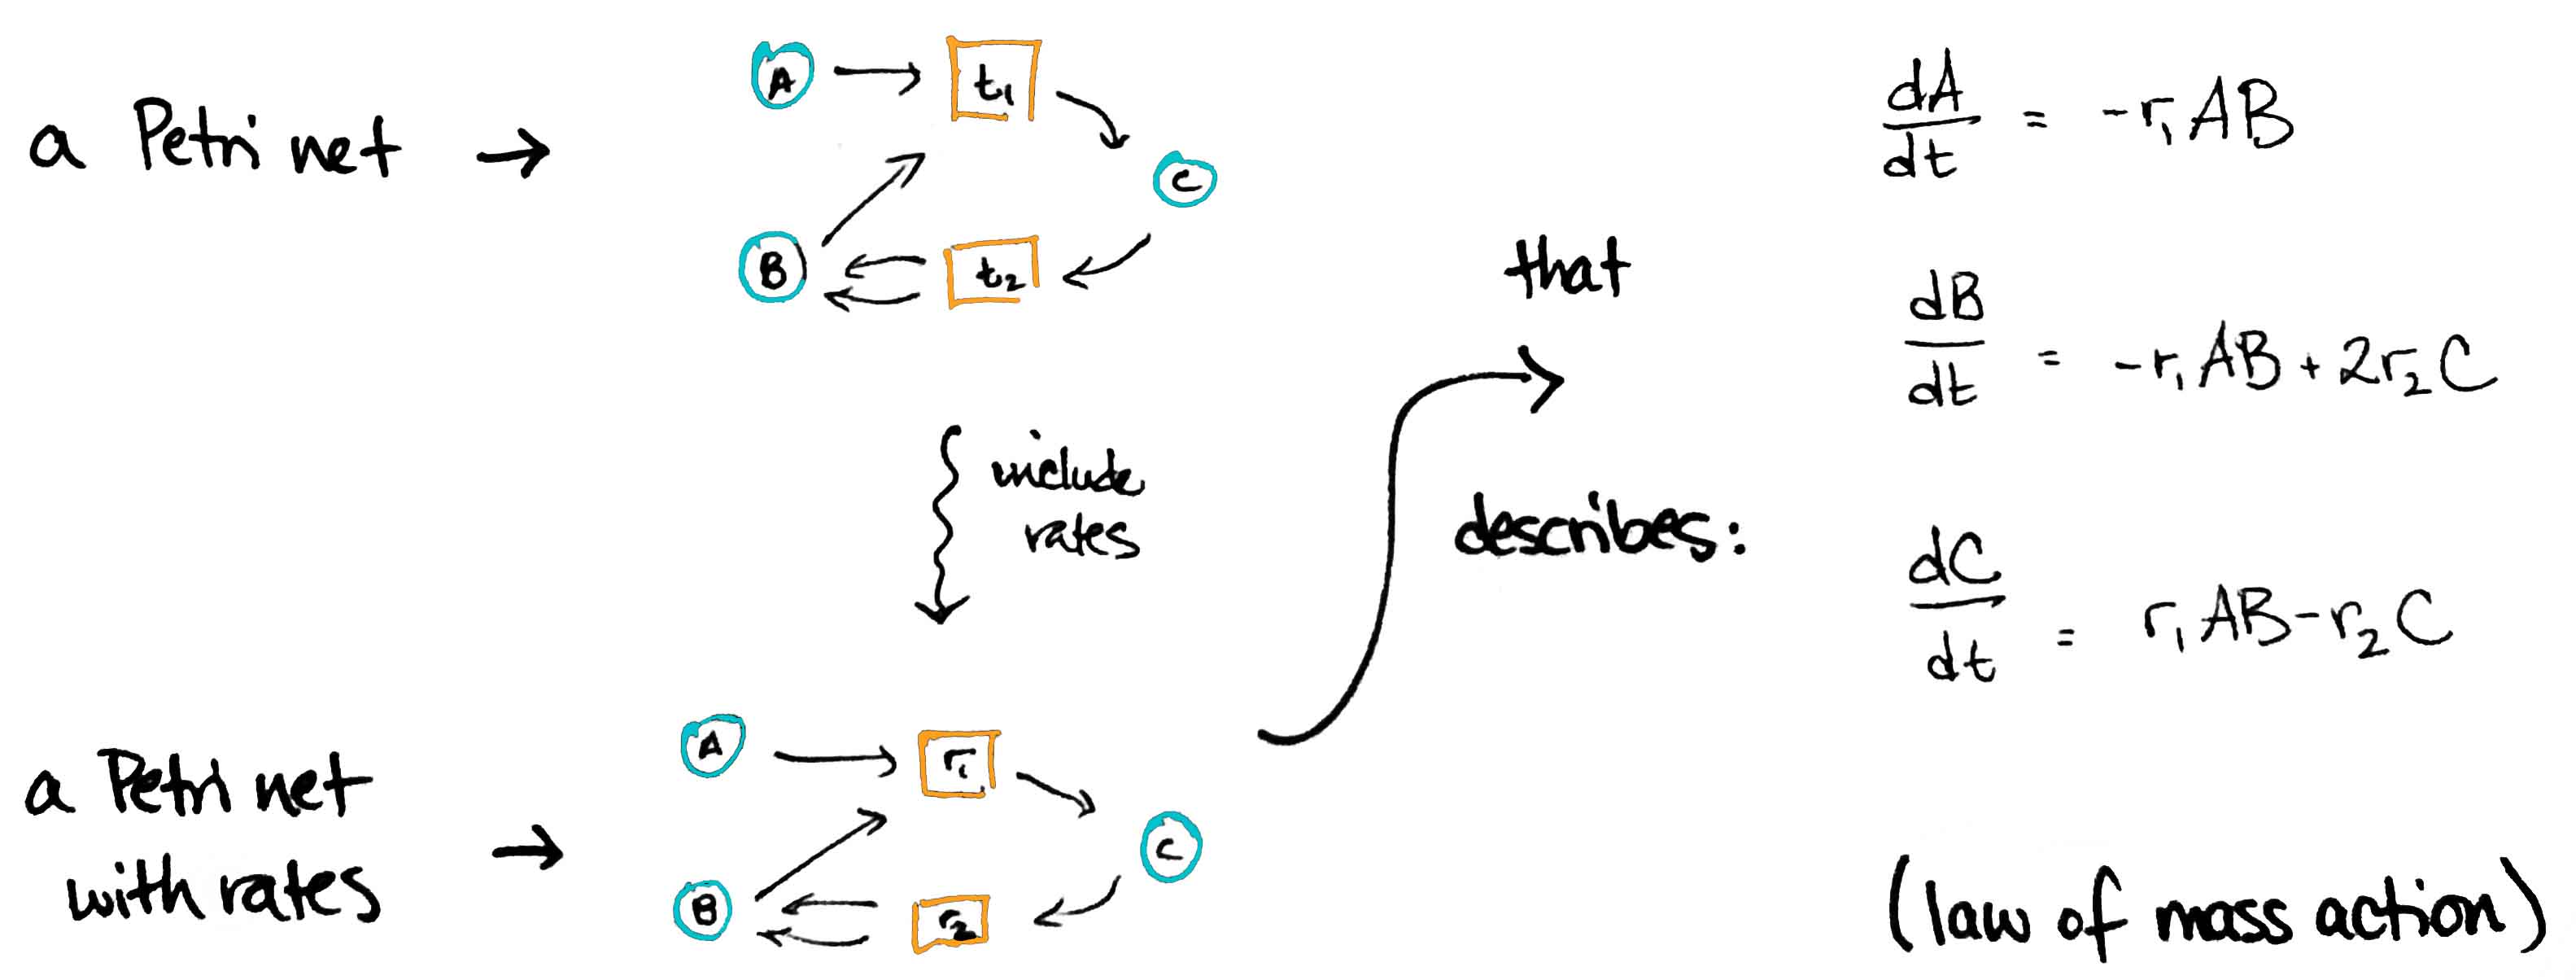 a Petri net →
A
t₁
C
B
t₂
include
rates
a Petri net
with rates →
A
r₁
C
B
r₂
that
describes:
dA/dt = -r₁AB
dB/dt = -r₁AB + 2r₂C
dC/dt = r₁AB - r₂C
(law of mass action)